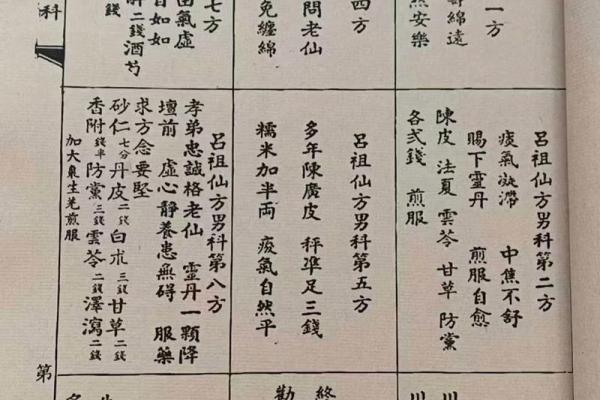 一方
綿遠
安樂
四方
問老仙
免纏綿
七方
氣虛
自如如
二錢酒芍
錢
科
呂祖仙方男科第二方
痰氣凝滯 中焦不舒
賜下靈丹 煎服自愈
陳皮 法夏 雲苓 甘草 防黨
各弍錢 煎服
呂祖仙方男科第五方
多年陳廣皮 秤準足三錢
糯米加半両 痰氣自然平
呂祖仙方男科第八方
孝弟忠誠格老仙 靈丹一顆降
壇前 虛心靜養患無碍 服藥
求方念要堅
砂仁七分丹皮二錢白朮三錢甘草二錢
香附錢半防黨三錢雲苓二錢澤瀉二錢
加大棗生羌煎服
第